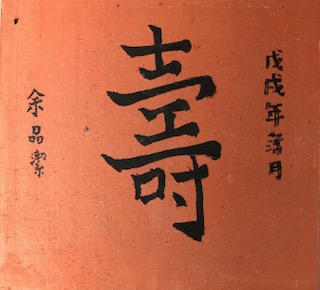 戊戌年蒲月
壽
余品潔